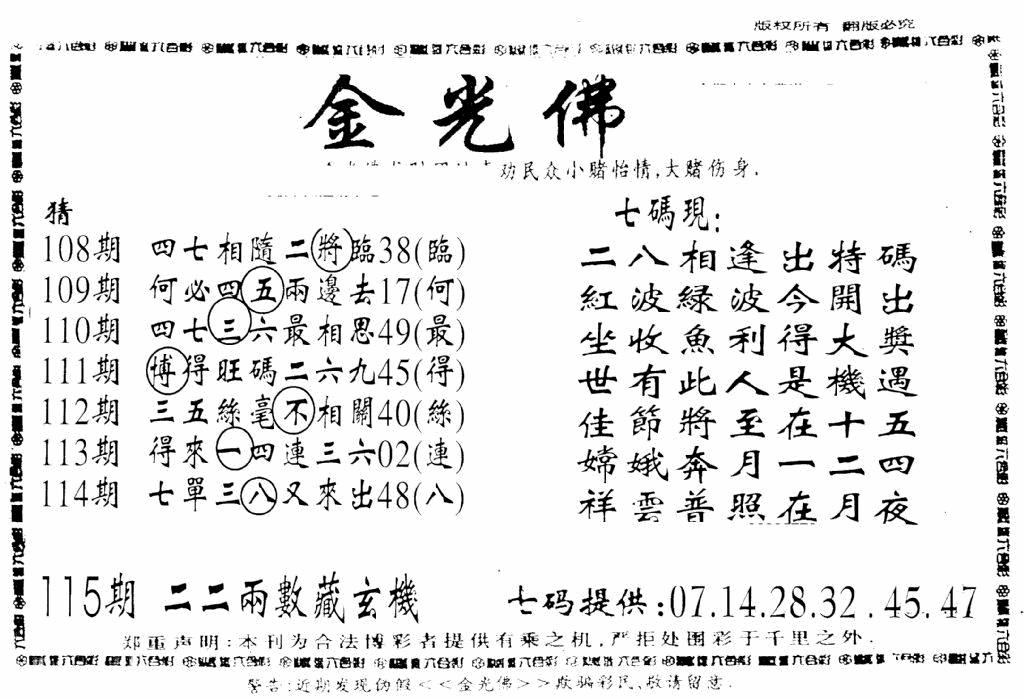 版权所有 翻版必究
金光佛
劝民众小赌怡情,大赌伤身.
猜
108期 四七相隨二將臨38(臨)
109期 何必四五兩邊去17(何)
110期 四七三六最相思49(最)
111期 博得旺碼二六九45(得)
112期 三五絲毫不相關40(絲)
113期 得來一四連三六02(連)
114期 七單三八又來出48(八)
七碼現:
二八相逢出特碼
紅波綠波今開出
坐收魚利得大獎
世有此人是機遇
佳節將至在十五
嫦娥奔月一二四
祥雲普照在月夜
115期 二二兩數藏玄機
七码提供:07.14.28.32.45.47
郑重声明:本刊为合法博彩者提供有乘之机,严拒处围彩于千里之外.
警告:近期发现伪假<<金光佛>>欺骗彩民,敬请留意.